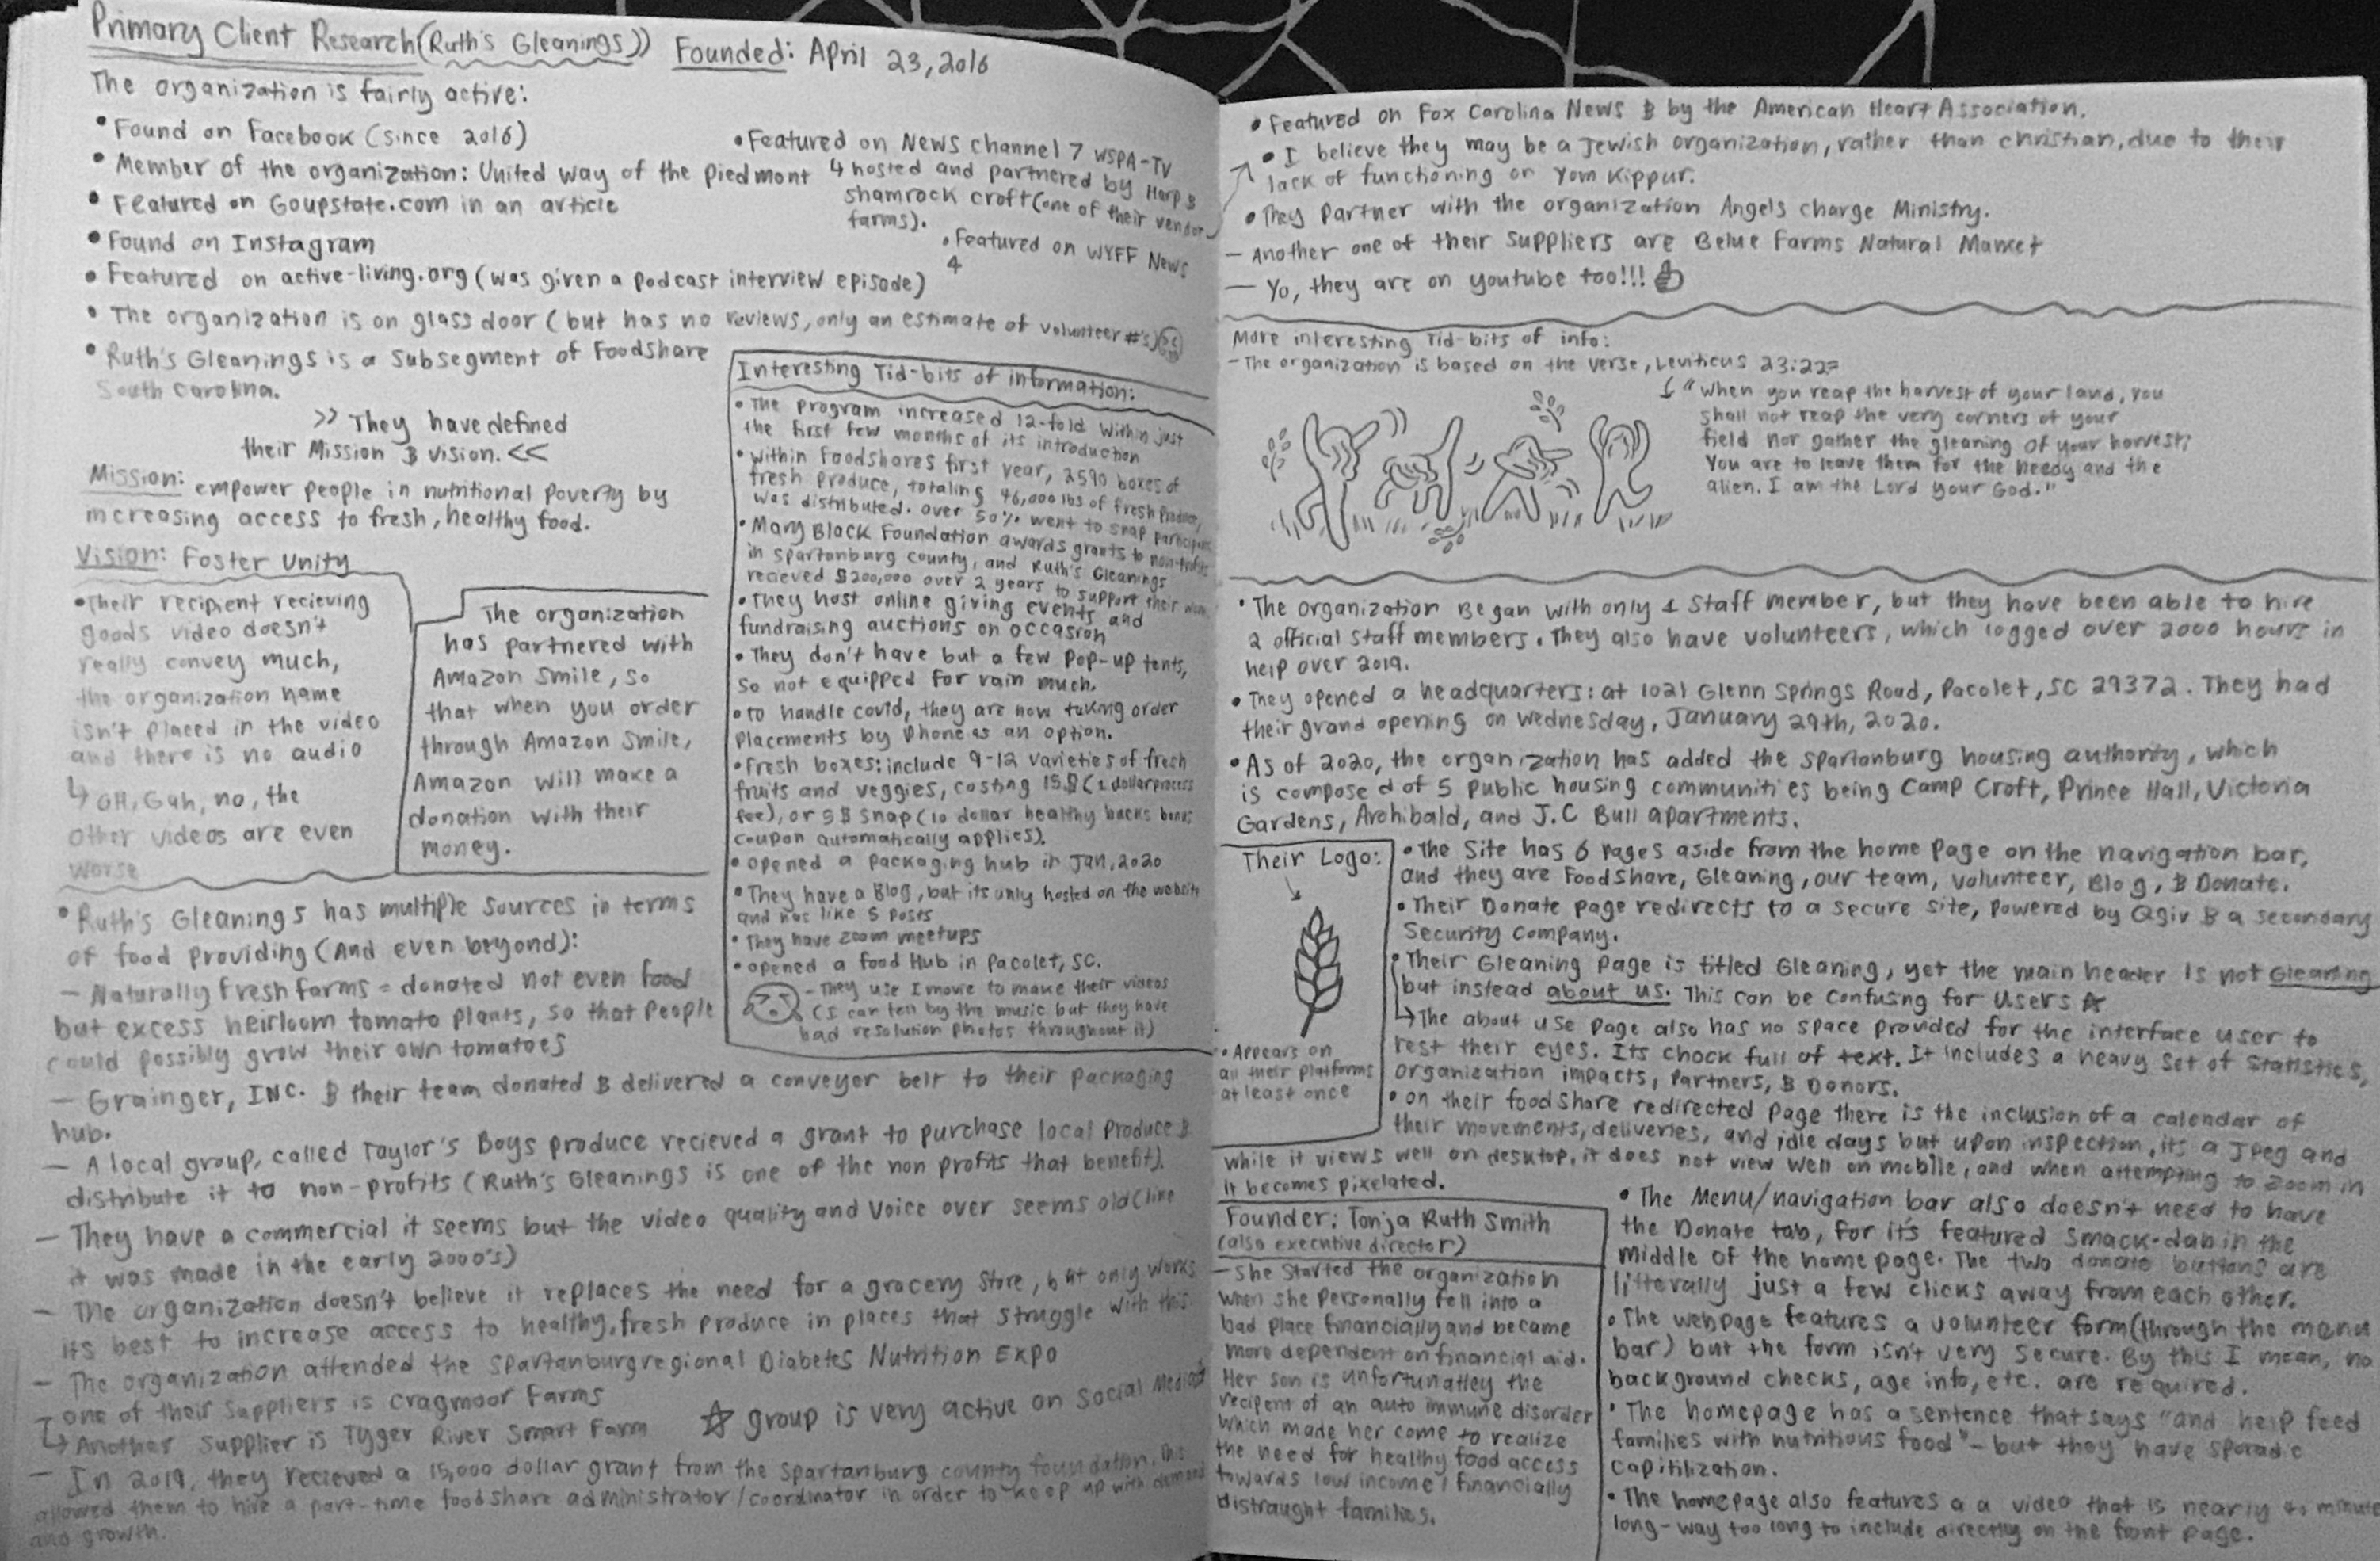 Primary Client Research (Ruth's Gleanings)) Founded: April 23, 2016
The organization is fairly active:
• Found on Facebook (since 2016)
• Member of the organization: United Way of the Piedmont
• Featured on Goupstate.com in an article
• Found on Instagram
• Featured on active-living.org (was given a podcast interview episode)
• The organization is on glassdoor (but has no reviews, only an estimate of volunteer #'s)
• Ruth's Gleanings is a subsegment of Foodshare
South Carolina.
• Featured on News channel 7 WSPA-TV
↳ hosted and partnered by Harp &
Shamrock croft (one of their vendor
farms).
• Featured on WYFF News
4
>> They have defined
their Mission & vision. <<
Mission: empower people in nutritional poverty by
increasing access to fresh, healthy food.
Vision: Foster Unity
• Their recipient recieving
goods video doesn't
really convey much,
the organization name
isn't placed in the video
and there is no audio
↳ OH, Gah, no, the
other videos are even
worse
The organization
has partnered with
Amazon Smile, so
that when you order
through Amazon Smile,
Amazon will make a
donation with their
money.
Interesting Tid-bits of information:
• The program increased 12-fold within just
the first few months of its introduction
• within Foodshares first year, 2590 boxes of
fresh produce, totaling 46,000 lbs of fresh produce,
was distributed. over 50% went to snap
• Mary Black Foundation awards grants to non-profits
in spartanburg county, and Ruth's Gleanings
recieved $200,000 over 2 years to support their
• They host online giving events and
fundraising auctions on occasion
• They don't have but a few Pop-up tents,
so not equipped for rain much.
• to handle covid, they are now taking order
placements by phone as an option.
• Fresh boxes: include 9-12 varieties of fresh
fruits and veggies, costing 15$ (1 dollar process
fee), or 5$ snap (10 dollar healthy bucks bonus
coupon automatically applies).
• opened a packaging hub in Jan, 2020
• They have a Blog, but its only hosted on the website
and has like 5 posts
• They have zoom meetups
• opened a food Hub in Pacolet, SC.
- They use I movie to make their videos
(I can tell by the music but they have
bad resolution photos throughout it)
• Ruth's Gleanings has multiple sources in terms
of food providing (And even beyond):
- Naturally Fresh farms = donated not even food
but excess heirloom tomato plants, so that people
could possibly grow their own tomatoes
- Grainger, INC. & their team donated & delivered a conveyor belt to their packaging
hub.
- A local group, called Taylor's Boys produce recieved a grant to purchase local produce &
distribute it to non-profits (Ruth's Gleanings is one of the non profits that benefit).
- They have a commercial it seems but the video quality and voice over seems old (like
it was made in the early 2000's)
- The organization doesn't believe it replaces the need for a grocery store, but only works
its best to increase access to healthy, fresh produce in places that struggle with this.
- The organization attended the spartanburg regional Diabetes Nutrition Expo
- one of their suppliers is Cragmoor Farms
↳ Another supplier is Tyger River Smart Farm
☆ group is very active on social media
- In 2019, they recieved a 15,000 dollar grant from the spartanburg county foundation. This
allowed them to hire a part-time foodshare administrator/coordinator in order to keep up with demand
and growth.
• Featured on Fox Carolina News & by the American Heart Association.
• I believe they may be a Jewish organization, rather than christian, due to their
lack of functioning on Yom Kippur.
• They Partner with the organization Angels Charge Ministry.
- Another one of their suppliers are Belue Farms Natural Market
- Yo, they are on youtube too!!!
More interesting Tid-bits of info:
- The organization is based on the verse, Leviticus 23:22=
↳ "When you reap the harvest of your land, you
shall not reap the very corners of your
field nor gather the gleaning of your harvest;
You are to leave them for the needy and the
alien. I am the Lord your God."
• The organization Began with only 1 staff member, but they have been able to hire
2 official staff members. They also have volunteers, which logged over 2000 hours in
help over 2019.
• They opened a headquarters: at 1021 Glenn Springs Road, Pacolet, SC 29372. They had
their grand opening on Wednesday, January 29th, 2020.
• As of 2020, the organization has added the spartanburg housing authority, which
is composed of 5 public housing communities being Camp Croft, Prince Hall, Victoria
Gardens, Archibald, and J.C Bull apartments.
Their Logo:
• Appears on
all their platforms
at least once
• The site has 6 pages aside from the home page on the navigation bar,
and they are Foodshare, Gleaning, our team, volunteer, Blog, & Donate.
• Their Donate page redirects to a secure site, powered by Qgiv & a secondary
security company.
• Their Gleaning page is titled Gleaning, yet the main header is not Gleaning
but instead about us. This can be confusing for users ☆
↳ The about use page also has no space provided for the interface user to
rest their eyes. Its chock full of text. It includes a heavy set of statistics,
organization impacts, Partners, & Donors.
• on their foodshare redirected page there is the inclusion of a calendar of
their movements, deliveries, and idle days but upon inspection, its a Jpeg and
while it views well on desktop, it does not view well on mobile, and when attempting to zoom in
it becomes pixelated.
Founder: Tonja Ruth Smith
(also executive director)
- She started the organization
when she personally fell into a
bad place financially and became
more dependent on financial aid.
Her son is unfortunatley the
recipent of an auto immune disorder
which made her come to realize
the need for healthy food access
towards low income/financially
distraught families.
• The Menu/navigation bar also doesn't need to have
the Donate tab, for it's featured smack-dab in the
middle of the home page. The two donate buttons are
litterally just a few clicks away from each other.
• The webpage features a volunteer form (through the menu
bar) but the form isn't very secure. By this I mean, no
background checks, age info, etc. are required.
• The homepage has a sentence that says "and help feed
families with nutritious food" - but they have sporadic
capitilization.
• The homepage also features a a video that is nearly minute
long - way too long to include directly on the front page.